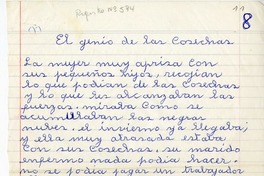 Reporte Nº 574
11
8
El genio de las Cosechas
La mujer muy aprisa con
sus pequeños hijos, recojian
lo que podian de las cosechas
y lo que les alcanzaban las
fuerzas. miraba como se
acumulaban las negras
nubes. el invierno ya llegaba;
y ella muy atrasada estaba
con sus cosechas, su marido
enfermo nada podia hacer.
no se podia pagar un trabajador